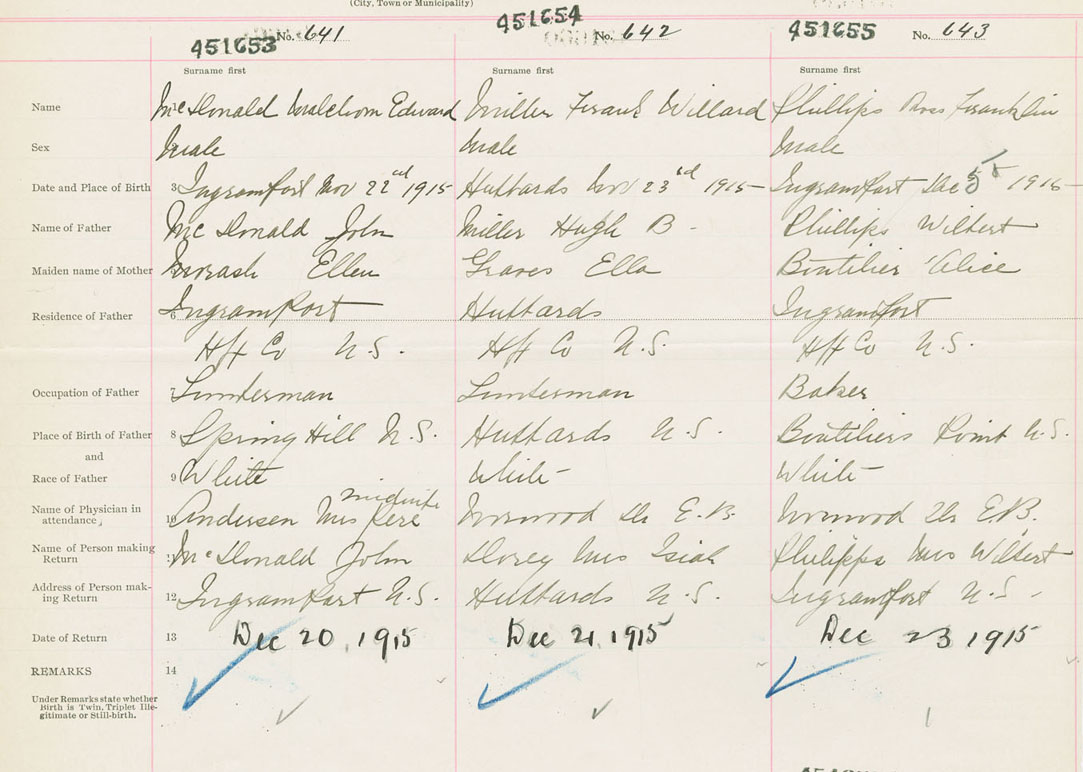 (City, Town or Municipality)
451653 No. 641 451654 No. 642 451655 No. 643
Surname first Surname first Surname first
Name McDonald Malcholm Edward Miller Frank Willard Phillips Ross Franklin
Sex Male Male Male
Date and Place of Birth 3 Ingramport Nov 22nd 1915 Hubbards Nov 23rd 1915 Ingramport Dec 5 1915
Name of Father McDonald John Miller Hugh B - Phillips Wilbert
Maiden name of Mother Morash Ellen Graves Ella Boutilier Alice
Residence of Father 6 Ingramport Hubbards Ingramport
Hfx Co N.S. Hfx Co N.S. Hfx Co N.S.
Occupation of Father 7 Lumberman Lumberman Baker
Place of Birth of Father 8 Spring Hill N.S. Hubbards N.S. Boutiliers Point N.S.
and
Race of Father 9 White White White
midwife
Name of Physician in attendance, 10 Andersen Mrs Norwood Dr E.B. Norwood Dr E.B.
Name of Person making Return McDonald John Dorey Mrs Isiah Philipps Mrs Wilbert
Address of Person making Return 12 Ingramport N.S. Hubbards N.S. Ingramport N.S -
Date of Return 13 Dec 20, 1915 Dec 21, 1915 Dec 23 1915
REMARKS 14
Under Remarks state whether
Birth is Twin, Triplet Ille-
gitimate or Still-birth.